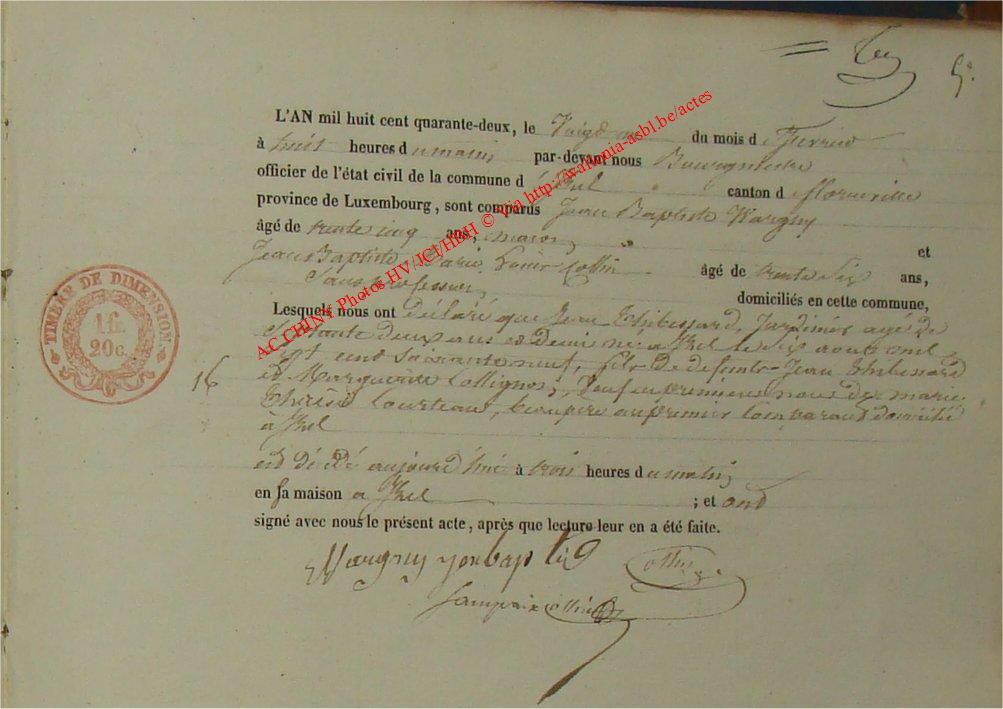 5e
L'AN mil huit cent quarante-deux, le Vingt du mois d e fevrier
à huit heures d u matin par-devant nous Bourgmestre
officier de l'état civil de la commune d' Izel canton d e florenville
province de Luxembourg, sont comparus Jean Baptiste Wargny
âgé de trente cinq ans, macon et
Jean Baptiste Marie Louis Collin âgé de trente Six ans,
Sans profession, domiciliés en cette commune,
Lesquels nous ont déclaré que Jean Thibessard, Jardinier agé de
Soixante deux ans et demi né a Izel le Six aout mil
Sept cent Soixante neuf, fils de defunts Jean Thibessard
16 et Marguerite Collignon, veuf en premieres noces de marie
Therese Courteau, beau pere au premier Comparant domicilié
a Izel
est décédé aujourd'hui à trois heures d u matin
en sa maison a Izel ; et ont
signé avec nous le présent acte, après que lecture leur en a été faite.
Wargny jean bap tis
Collin
TIMBRE DE DIMENSION
1 fr.
20 c.
AC CHINY Photos HV/JCI/HBH © Via http://wallonia-asbl.be/actes